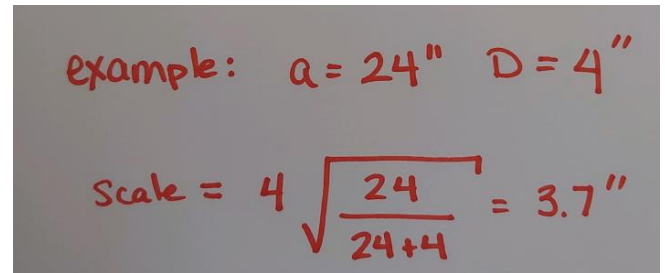 example: a = 24" D = 4"
scale = 4 √(24/(24+4)) = 3.7"